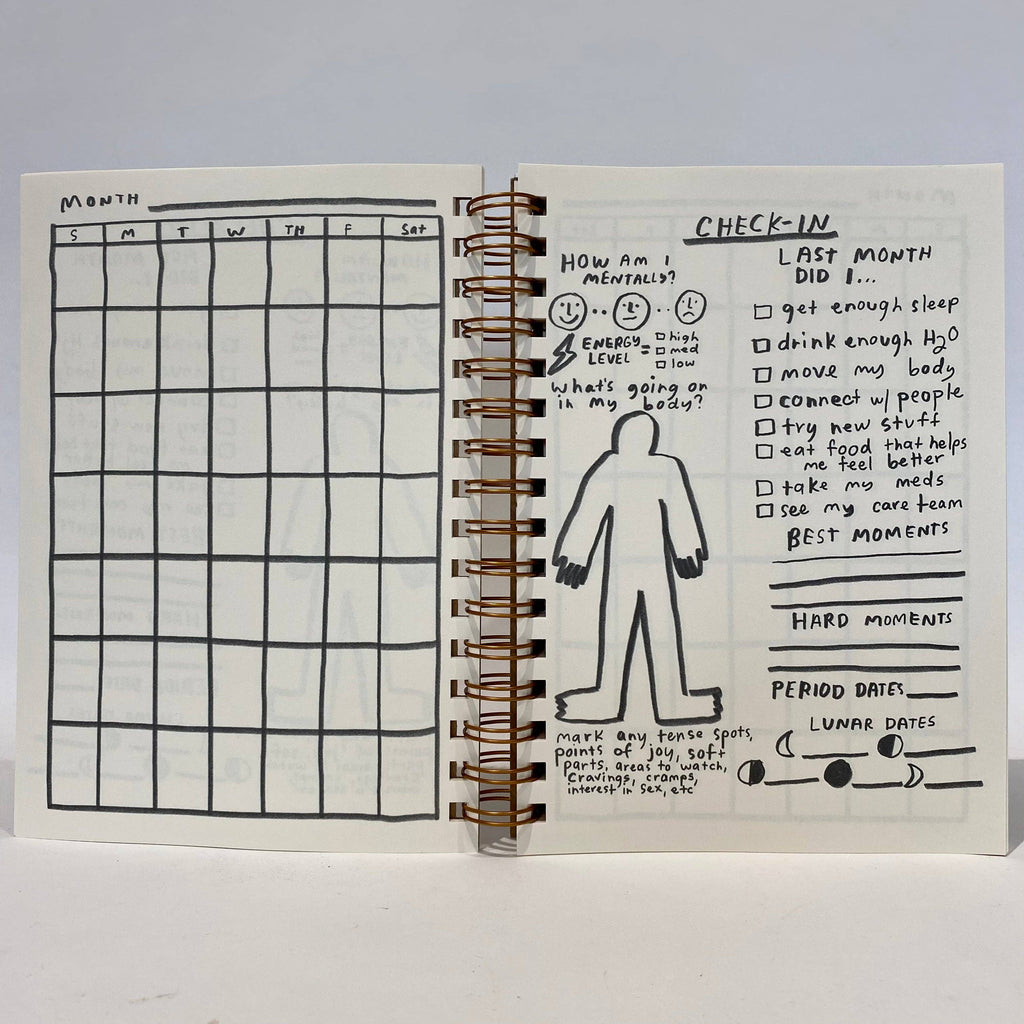 MONTH
S M T W TH F Sat
CHECK-IN
HOW AM I
MENTALLY?
ENERGY
LEVEL =
high
med
low
what's going on
in my body?
mark any tense spots,
points of joy, soft
parts, areas to watch,
cravings, cramps,
interest in sex, etc
LAST MONTH
DID I...
get enough sleep
drink enough H2O
move my body
connect w/ people
try new stuff
eat food that helps
me feel better
take my meds
see my care team
BEST MOMENTS
HARD MOMENTS
PERIOD DATES
LUNAR DATES